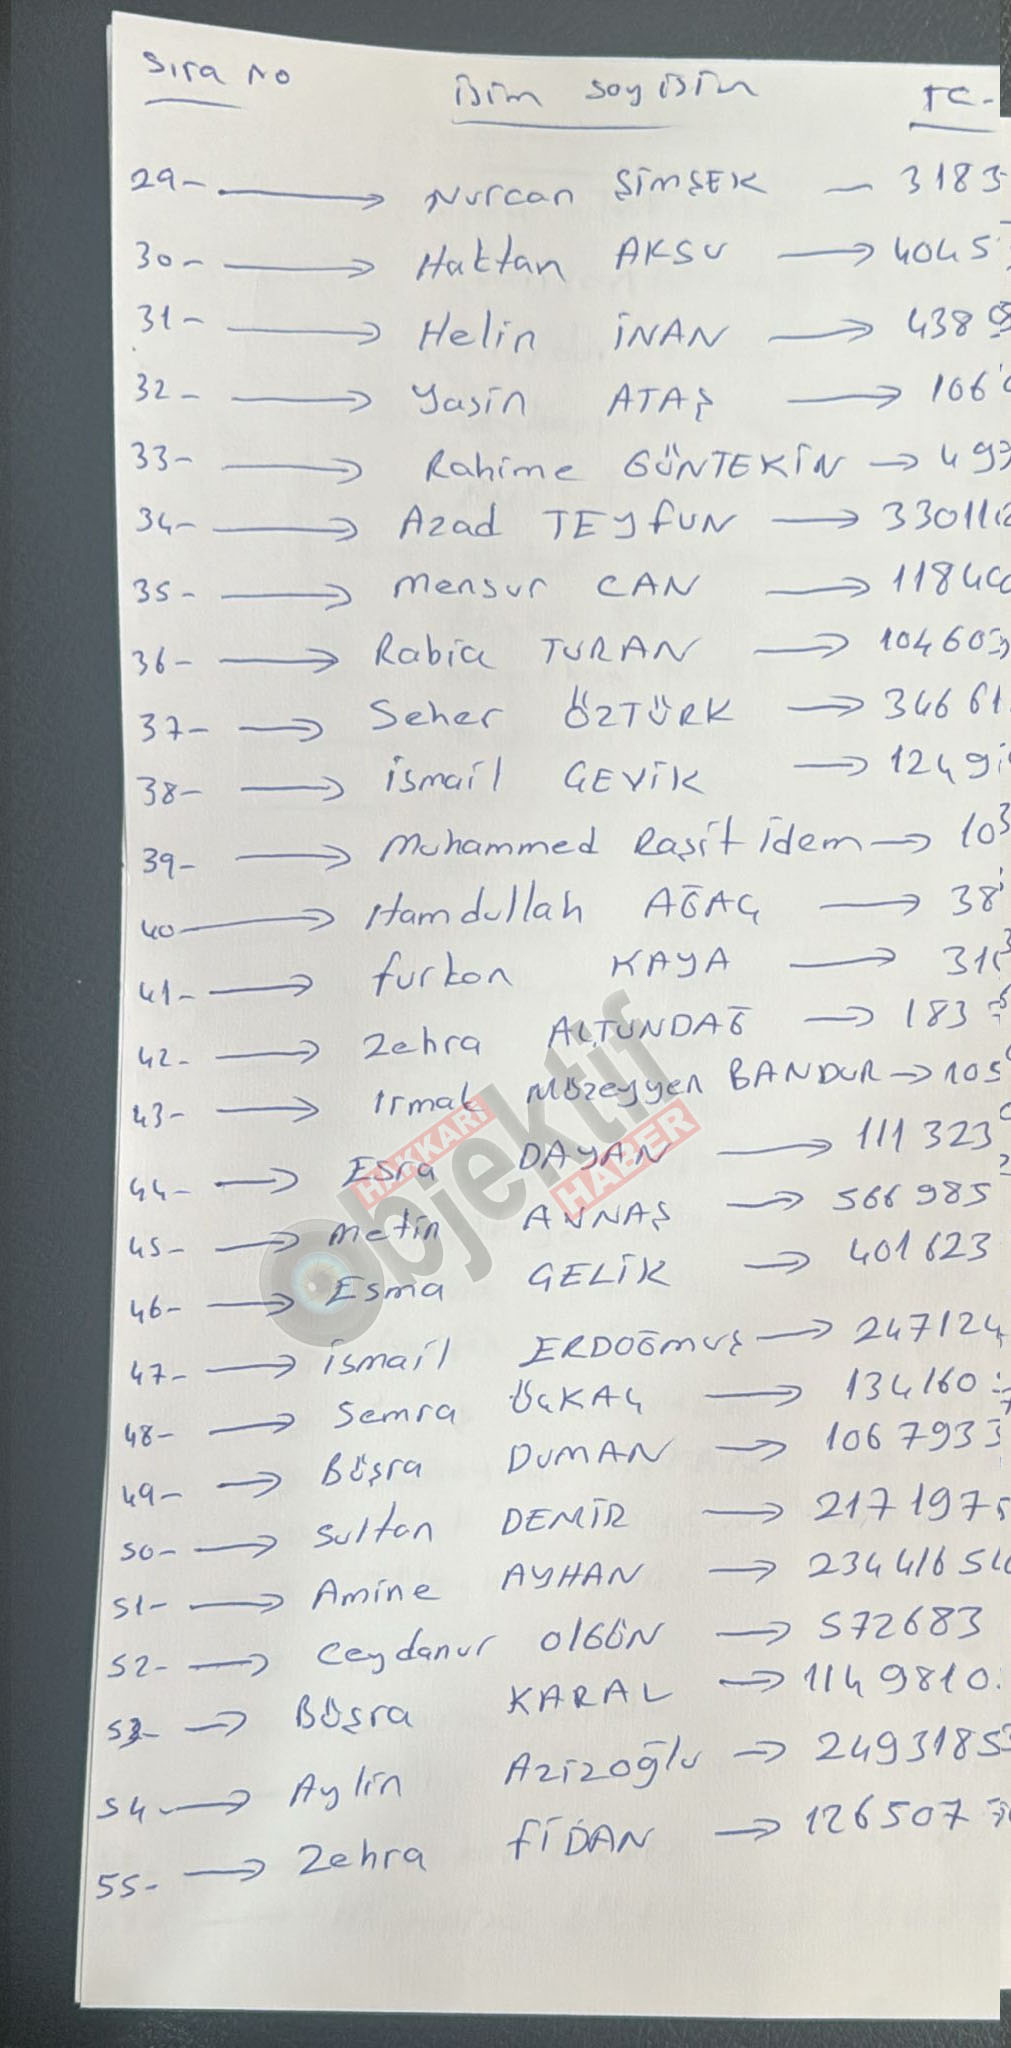 Sıra No isim soyisim TC-
29- Nurcan ŞİMŞEK - 3183
30- Haktan AKSU 4045
31- Helin İNAN 438
32- Yasin ATAŞ 106
33- Rahime GÜNTEKİN 49
34- Azad TEYfUN 33011
35- Mensur CAN 1184
36- Rabia TURAN 10460
37- Seher ÖZTÜRK 34661
38- İsmail GEVİK 1249
39- Muhammed Raşit idem 10
40 Hamdullah AĞAÇ 38
41- furkan KAYA 31
42- Zehra ALTUNDAĞ 183
43- Irmak Müzeyyen BANDUR 105
44- Esra DAYAN 111323
45- Metin ANNAŞ 566985
46- Esma GELİK 401623
47- ismail ERDOĞmuş 247124
48- Semra ÜÇKAÇ 134160
49- Büşra DUMAN 1067933
50- Sultan DEMİR 217197
51- Amine AYHAN 2344165
52- Ceydanur OlGÜN 572683
53- Büşra KARAL 1149810
54- Aylin Azizoğlu 2493185
55- Zehra fİDAN 126507
HAKKARİ
Objektif
HABER